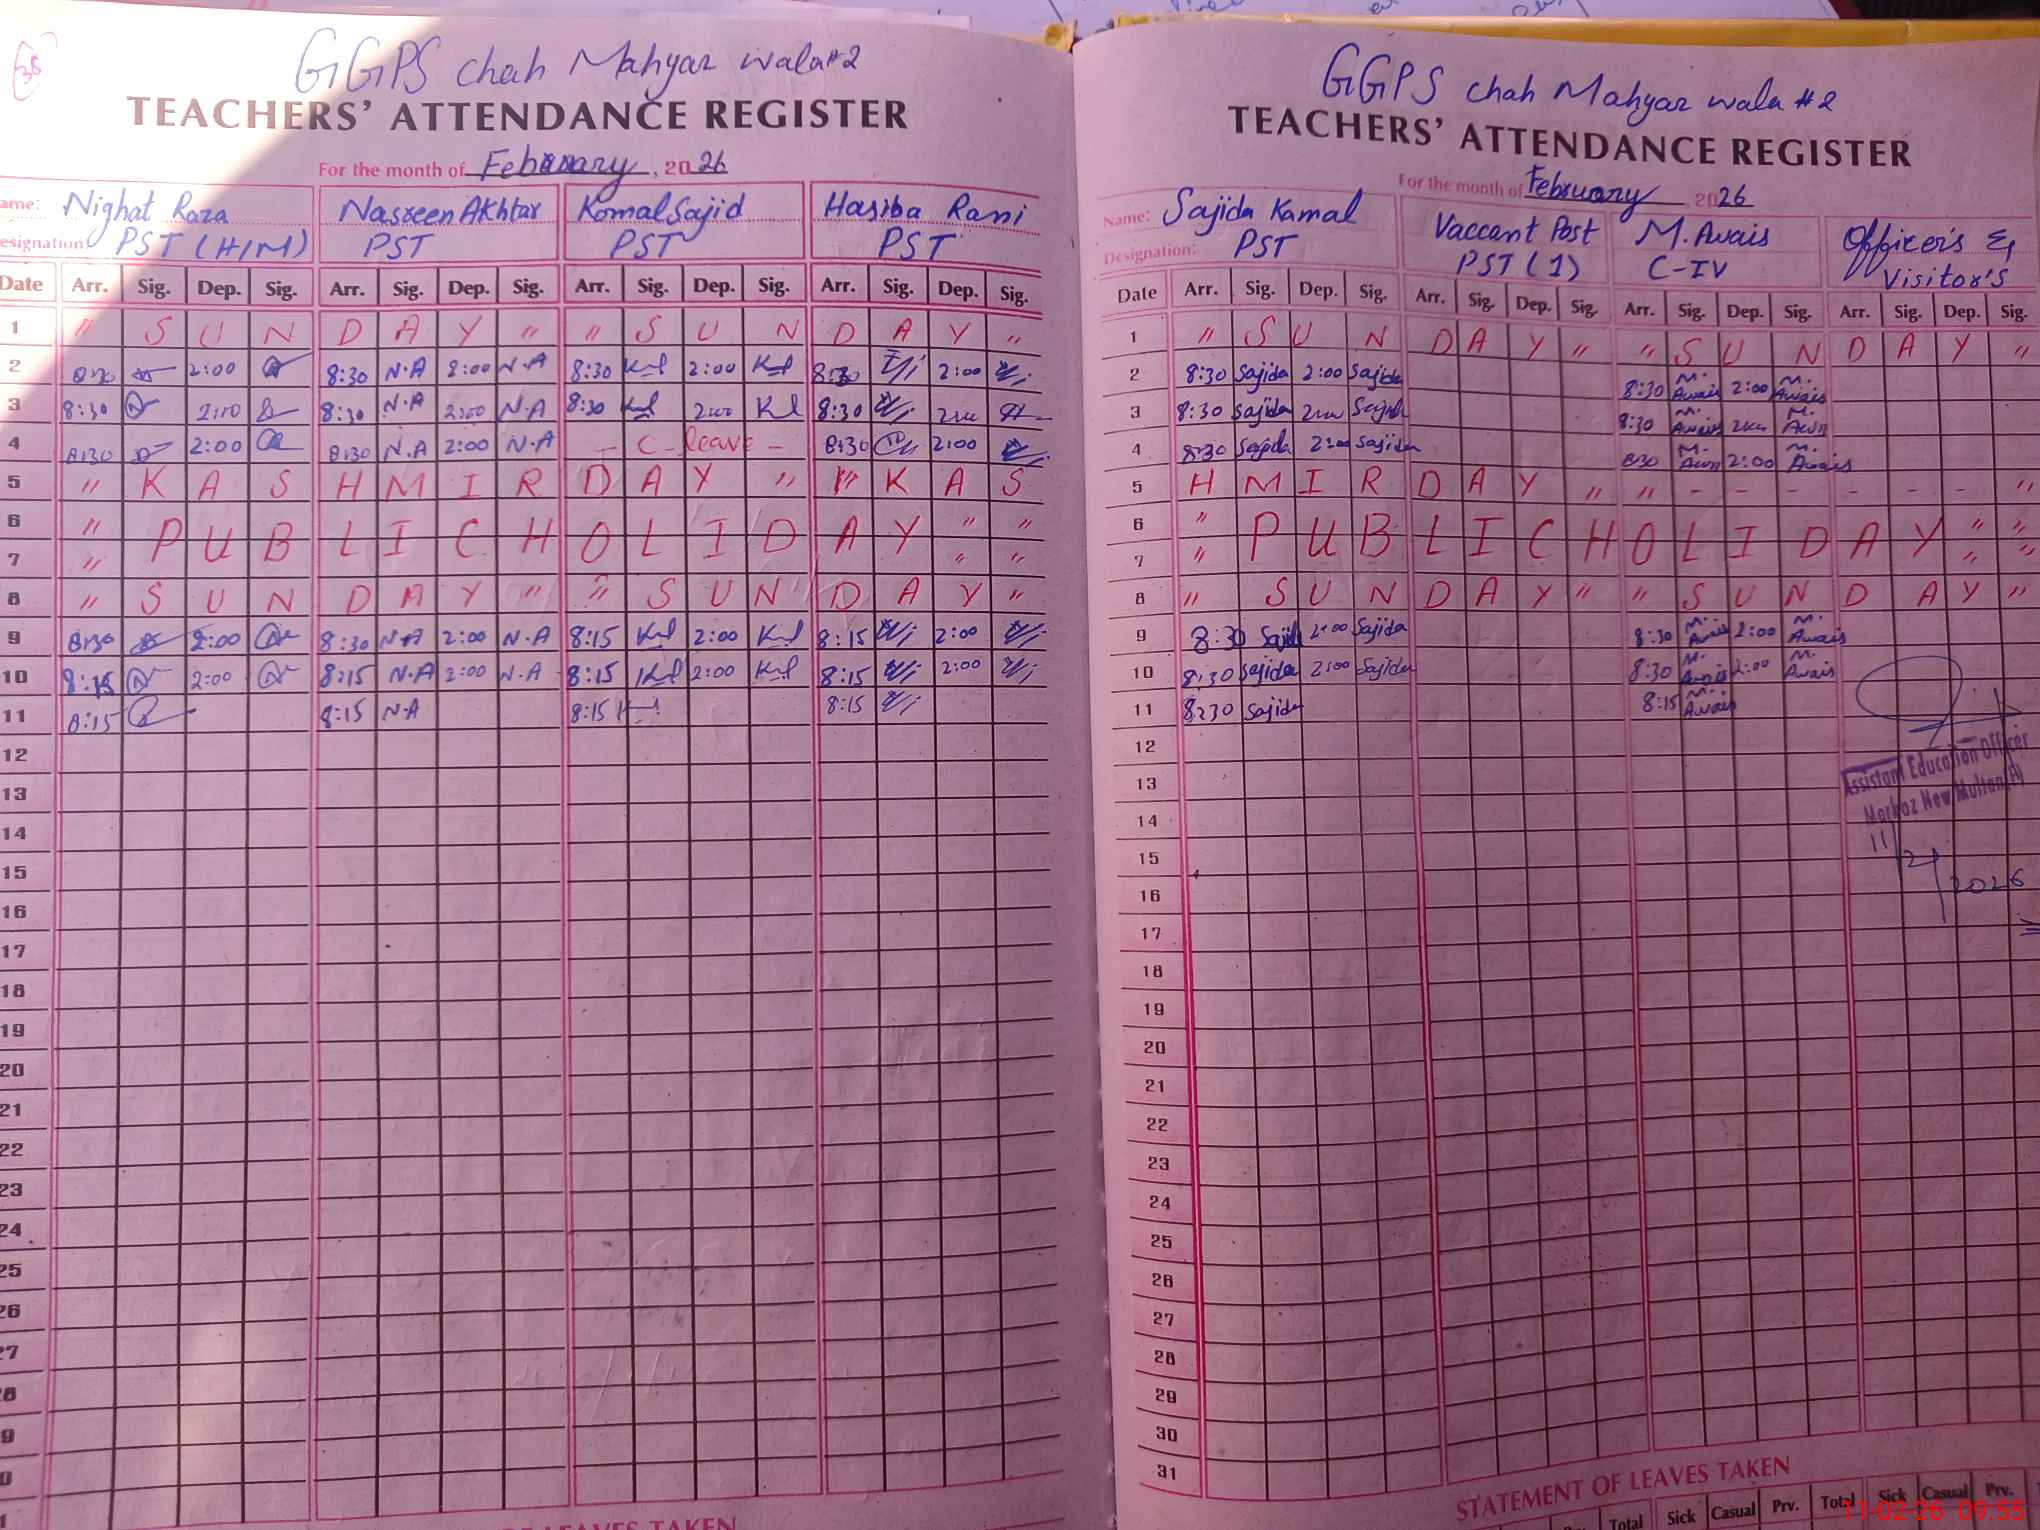 GGPS chah Mahyar wala #2
TEACHERS' ATTENDANCE REGISTER
For the month of February, 2026
ame: Nighat Raza Nasreen Akhtar Komal Sajid Hasiba Rani
esignation: PST (H/M) PST PST PST
Date Arr. Sig. Dep. Sig. Arr. Sig. Dep. Sig. Arr. Sig. Dep. Sig. Arr. Sig. Dep. Sig.
1 " S U N D A Y " " S U N D A Y "
2 8:30 2:00 8:30 N.A 2:00 N.A 8:30 2:00 8:30 2:00
3 8:30 2:00 8:30 N.A 2:00 N.A 8:30 2:00 8:30 2:00
4 8:30 2:00 8:30 N.A 2:00 N.A - C leave - 8:30 2:00
5 " K A S H M I R D A Y " " K A S
6 " P U B L I C H O L I D A Y " "
7 " " "
8 " S U N D A Y " " S U N D A Y "
9 8:30 2:00 8:30 N.A 2:00 N.A 8:15 2:00 8:15 2:00
10 8:15 2:00 8:15 N.A 2:00 N.A 8:15 2:00 8:15 2:00
11 8:15 8:15 N.A 8:15 8:15
12
13
14
15
16
17
18
19
20
21
22
23
24
25
26
27
28
9
0
1
LEAVES TAKEN
GGPS chah Mahyar wala #2
TEACHERS' ATTENDANCE REGISTER
For the month of February, 2026
Name: Sajida Kamal Vaccant Post M. Awais Officer's &
Designation: PST PST (1) C-IV Visitor's
Date Arr. Sig. Dep. Sig. Arr. Sig. Dep. Sig. Arr. Sig. Dep. Sig. Arr. Sig. Dep. Sig.
1 " S U N D A Y " " S U N D A Y "
2 8:30 Sajida 2:00 Sajida 8:30 M. Awais 2:00 M. Awais
3 8:30 Sajida 2:00 Sajida 8:30 M. Awais 2:00 M. Awais
4 8:30 Sajida 2:00 Sajida 8:30 M. Awais 2:00 M. Awais
5 H M I R D A Y " " - - - - - - "
6 " P U B L I C H O L I D A Y " "
7 " " "
8 " S U N D A Y " " S U N D A Y "
9 8:30 Sajida 2:00 Sajida 8:30 M. Awais 2:00 M. Awais
10 8:30 Sajida 2:00 Sajida 8:30 M. Awais 2:00 M. Awais
11 8:30 Sajida 8:15 M. Awais
12
Assistant Education Officer
13
Markaz New Multan
14
11/2/2026
15
16
17
18
19
20
21
22
23
24
25
26
27
28
29
30
31
STATEMENT OF LEAVES TAKEN
Total Sick Casual Prv. Total Sick Casual Prv.
11-02-26 09:55